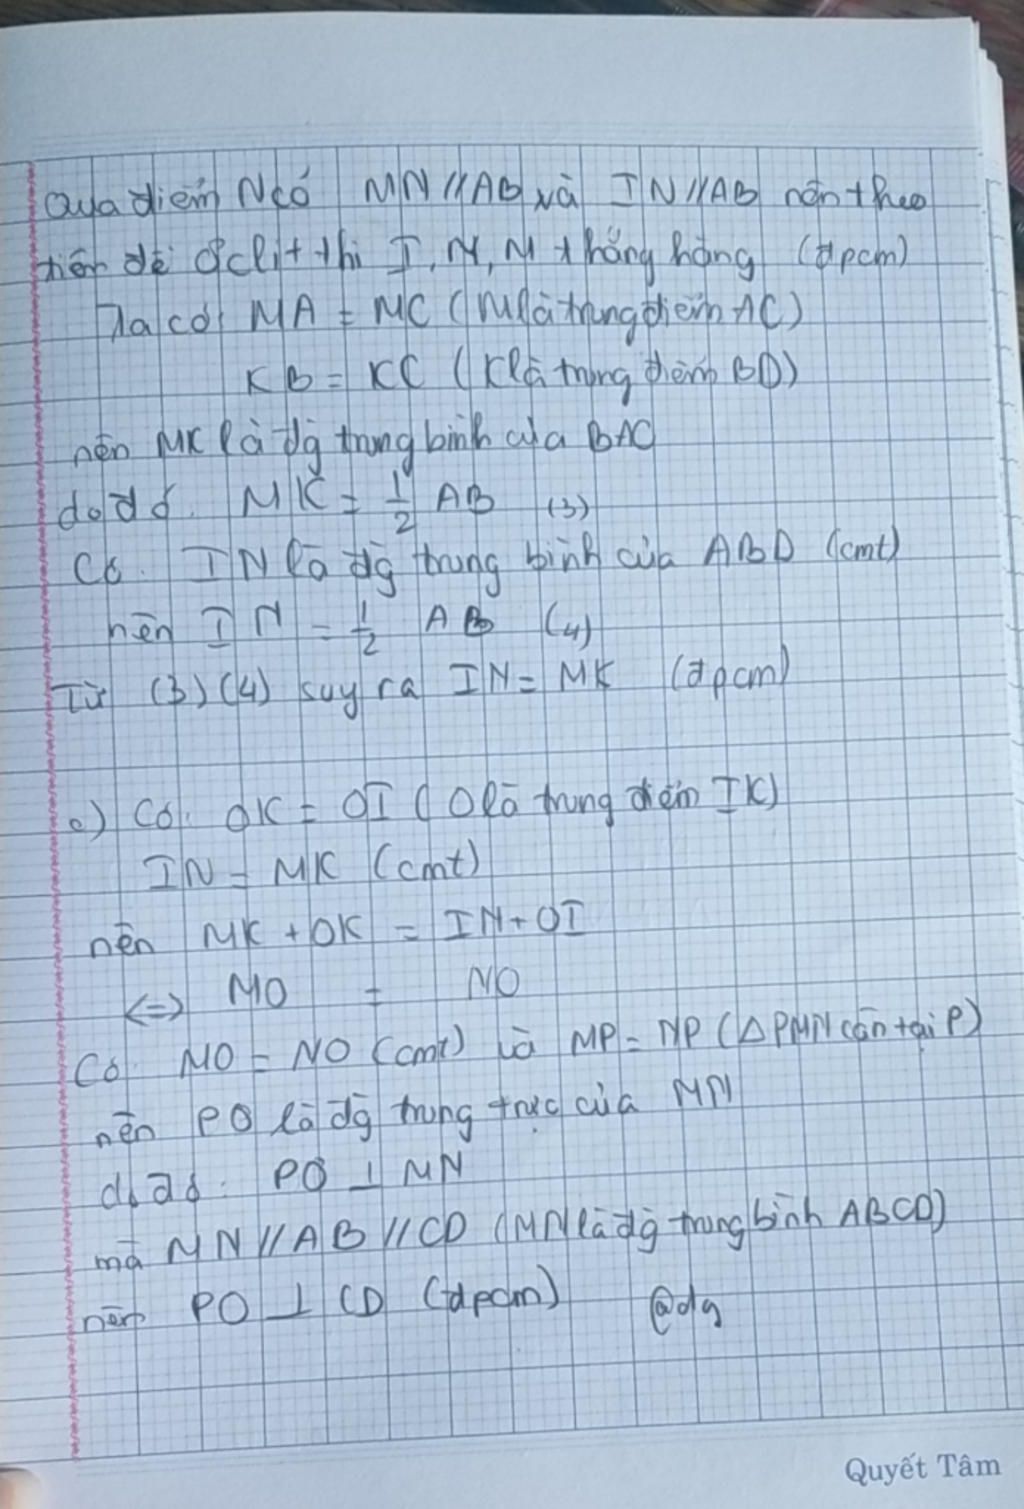 Qua điểm N có MN // AB và IN // AB nên theo
tiên đề Ơclit thì I, N, M thẳng hàng (đpcm)
Ta có: MA = MC (M là trung điểm AC)
KB = KC (K là trung điểm BD)
nên MK là đg trung bình của BAC
do đó. MK = 1/2 AB (3)
Có. IN là đg trung bình của ABD (cmt)
nên IN = 1/2 AB (4)
Từ (3) (4) suy ra IN = MK (đpcm)
c) Có. OK = OI (O là trung điểm IK)
IN = MK (cmt)
nên MK + OK = IN + OI
<=> MO = NO
Có. MO = NO (cmt) và MP = NP (△PMN cân tại P)
nên PO là đg trung trực của MN
do đó. PO ⊥ MN
mà MN // AB // CD (MN là đg trung bình ABCD)
nên PO ⊥ CD (đpcm) @dg
Quyết Tâm